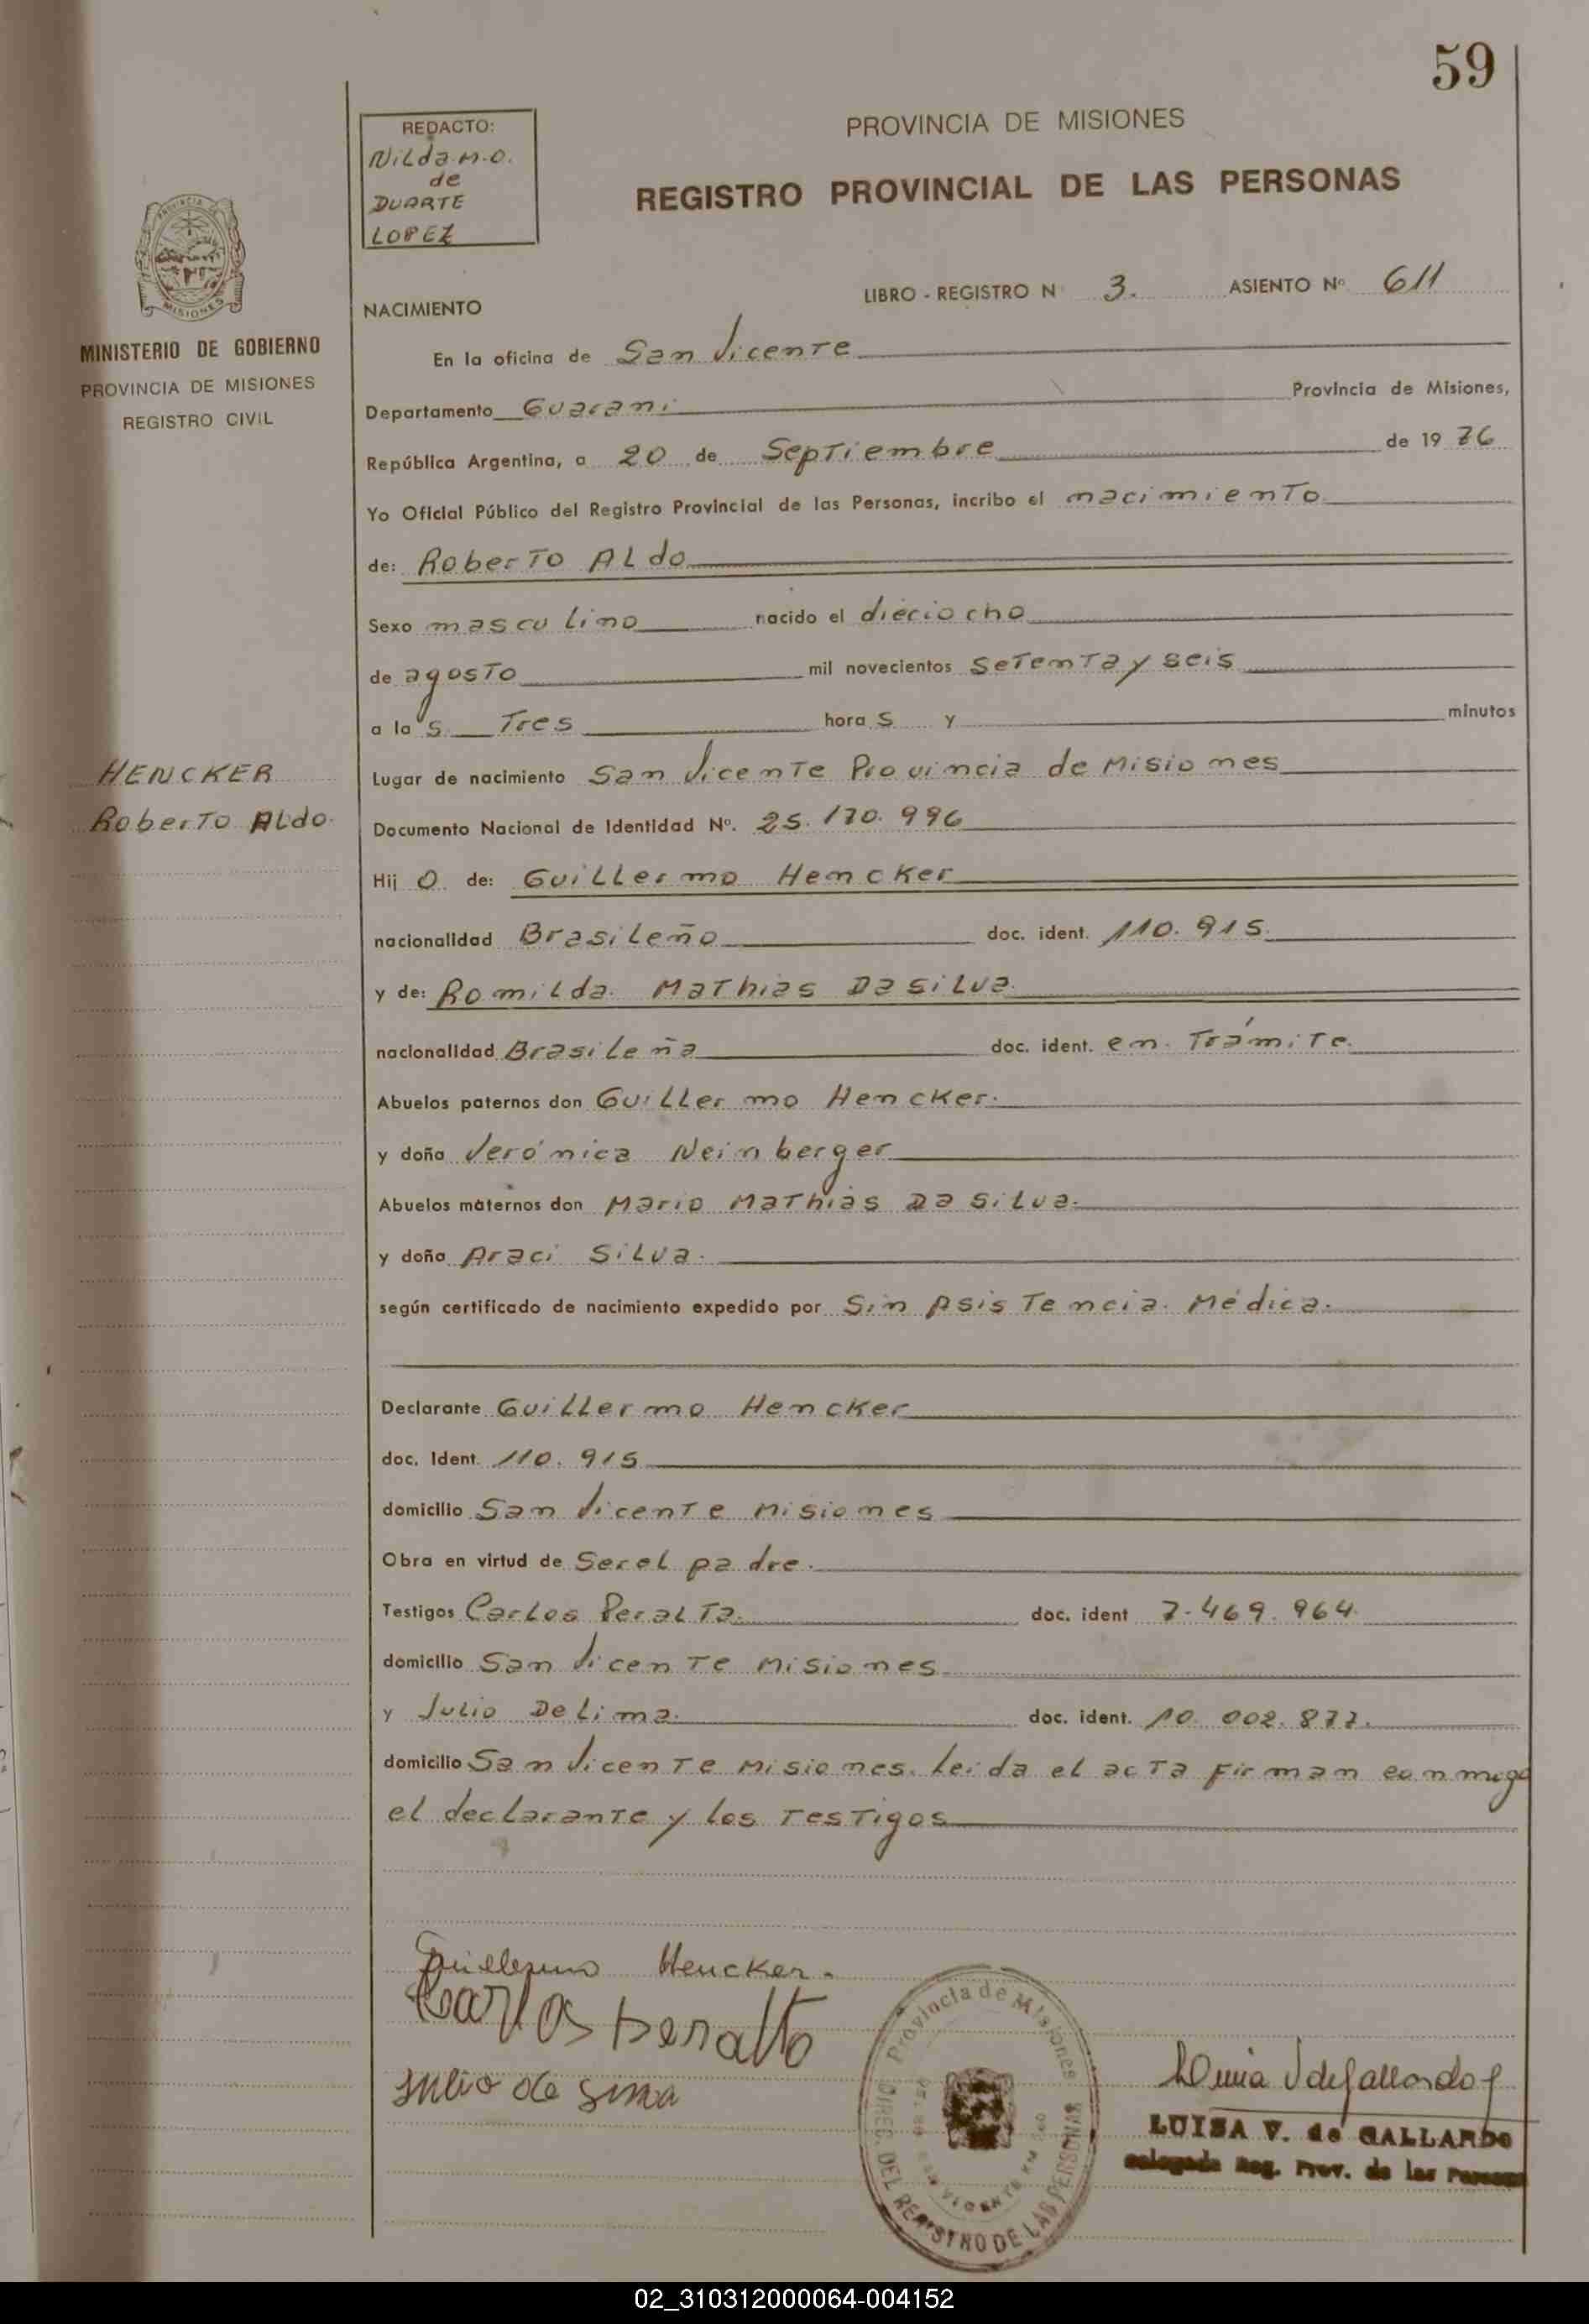 59
REDACTO:
Nilda M.O.
de
DUARTE
LOPEZ
PROVINCIA DE MISIONES
REGISTRO PROVINCIAL DE LAS PERSONAS
MISIONES
MINISTERIO DE GOBIERNO
PROVINCIA DE MISIONES
REGISTRO CIVIL
NACIMIENTO
LIBRO - REGISTRO N 3. ASIENTO Nº 611
En la oficina de San Vicente
Departamento Guarani Provincia de Misiones,
República Argentina, a 20 de Septiembre de 19 76
Yo Oficial Público del Registro Provincial de las Personas, incribo el nacimiento
de: Roberto Aldo
Sexo masculino nacido el dieciocho
de agosto mil novecientos setenta y seis
a la s Tres hora s y minutos
HENCKER
Roberto Aldo.
Lugar de nacimiento San Vicente Provincia de Misiones
Documento Nacional de Identidad Nº. 25.170.996
Hij o de: Guillermo Hencker
nacionalidad Brasileño doc. ident. 110.915.
y de: Romilda Mathias Dasilva.
nacionalidad Brasileña doc. ident. en Trámite.
Abuelos paternos don Guillermo Hencker.
y doña Verónica Neinberger
Abuelos maternos don Mario Mathias Da Silva.
y doña Araci Silva.
según certificado de nacimiento expedido por Sin Asistencia Médica.
Declarante Guillermo Hencker
doc. Ident. 110.915
domicilio San Vicente Misiones
Obra en virtud de Ser el padre.
Testigos Carlos Peralta. doc. ident 7.469.964.
domicilio San Vicente Misiones
y Julio De Lima. doc. ident. 10.002.877.
domicilio San Vicente Misiones. Leida el acta firman conmigo
el declarante y los Testigos
Guillermo Hencker.
Carlos Peralta
Julio de Lima
Provincia de Misiones
DIREC. DEL REGISTRO DE LAS PERSONAS
SAN VICENTE
LUISA V. de GALLARDO
Delegada Reg. Prov. de las Personas
02_310312000064-004152